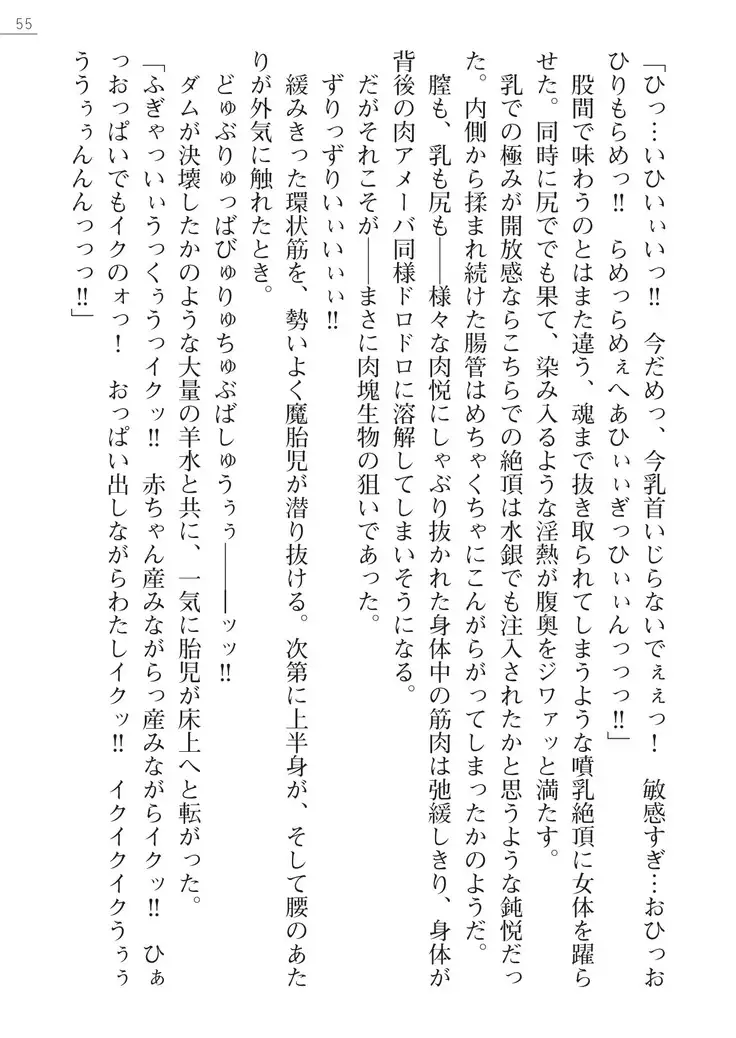 55
「ひっ…いひいぃいっ‼　今だめっ、今乳首いじらないでぇぇっ！　敏感すぎ…おひっお
ひりもらめっ‼　らめっらめぇへあひぃぃぎっひぃぃんっっっ‼」
股間で味わうのとはまた違う、魂まで抜き取られてしまうような噴乳絶頂に女体を躍ら
せた。同時に尻ででも果て、染み入るような淫熱が腹奥をジワァッと満たす。
乳での極みが開放感ならこちらでの絶頂は水銀でも注入されたかと思うような鈍悦だっ
た。内側から揉まれ続けた腸管はめちゃくちゃにこんがらがってしまったかのようだ。
膣も、乳も尻も――様々な肉悦にしゃぶり抜かれた身体中の筋肉は弛緩しきり、身体が
背後の肉アメーバ同様ドロドロに溶解してしまいそうになる。
だがそれこそが――まさに肉塊生物の狙いであった。
ずりっずりぃぃいぃぃ‼
緩みきった環状筋を、勢いよく魔胎児が潜り抜ける。次第に上半身が、そして腰のあた
りが外気に触れたとき。
どゅぶりゅっばびゅりゅちゅぶばしゅうぅぅ――――ッッ‼
ダムが決壊したかのような大量の羊水と共に、一気に胎児が床上へと転がった。
「ふぎゃっいぃうっくぅうっイクッ‼　赤ちゃん産みながらっ産みながらイクッ‼　ひぁ
っおっぱいでもイクのォっ！　おっぱい出しながらわたしイクッ‼　イクイクイクうぅぅ
ううぅぅんんんっっっ‼」